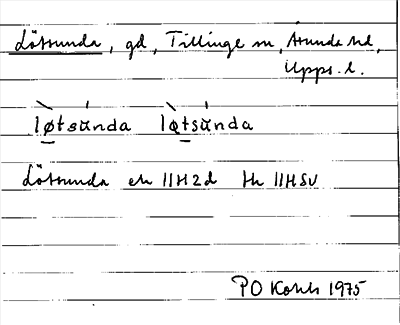 Lötsunda, gd, Tillinge sn, Åsunda hd,
Upps. l.
løtsùnda løtsùnda
Lötsunda ek 11H2d tk 11HSV
PO 1975